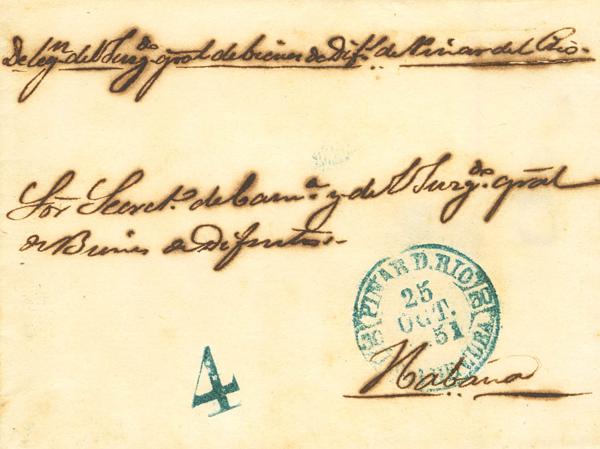 Delegn. del Juzgdo. gral de bienes de Difs. de Pinar del Rio.
Sōr Secreto. de Camª. y del Juzgdo. gral
de Bienes de Difuntos.
PINAR D. RIO
25
OCT.
51
CUBA
4
Habana